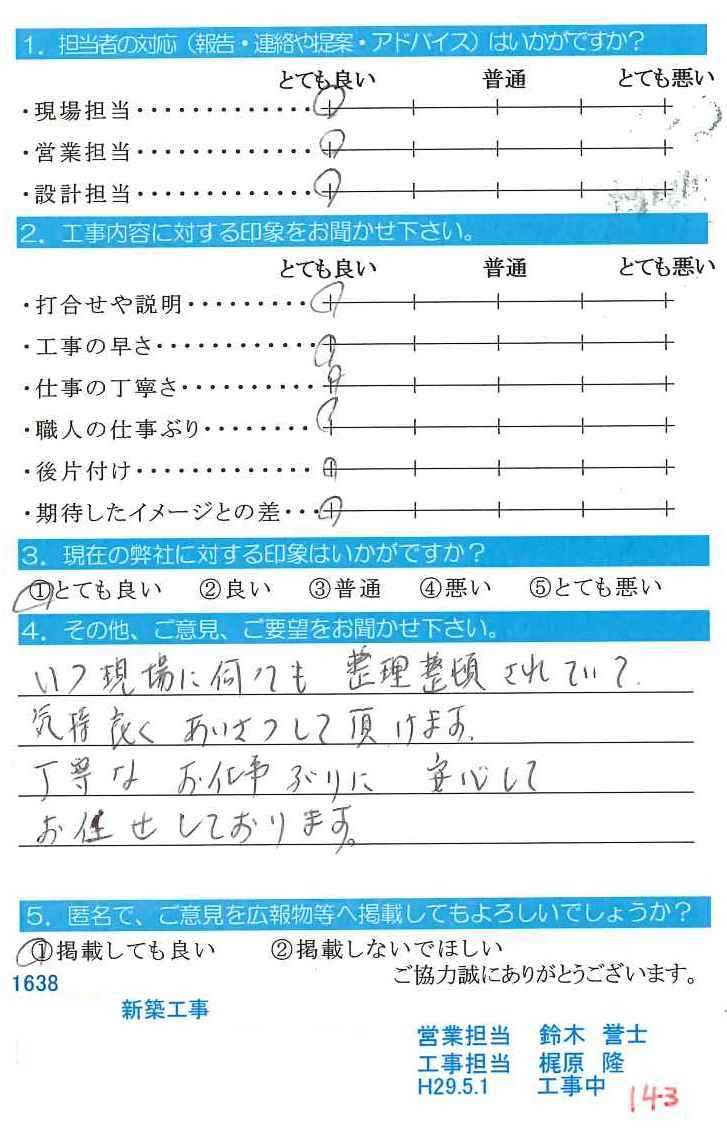 1. 担当者の対応（報告・連絡や提案・アドバイス）はいかがですか？
とても良い 普通 とても悪い
・現場担当・・・・・・・・・・・・・
・営業担当・・・・・・・・・・・・・
・設計担当・・・・・・・・・・・・・
2. 工事内容に対する印象をお聞かせ下さい。
とても良い 普通 とても悪い
・打合せや説明・・・・・・・・・
・工事の早さ・・・・・・・・・・・・
・仕事の丁寧さ・・・・・・・・・・
・職人の仕事ぶり・・・・・・・・
・後片付け・・・・・・・・・・・・・
・期待したイメージとの差・・・
3. 現在の弊社に対する印象はいかがですか？
①とても良い ②良い ③普通 ④悪い ⑤とても悪い
4. その他、ご意見、ご要望をお聞かせ下さい。
いつ現場に何っても 整理整頓されていて、
気持良く あいさつして頂けます。
丁寧な お仕事ぶりに 安心して
お任せしております。
5. 匿名で、ご意見を広報物等へ掲載してもよろしいでしょうか？
①掲載しても良い ②掲載しないでほしい
ご協力誠にありがとうございます。
1638
新築工事
営業担当 鈴木 誉士
工事担当 梶原 隆
H29.5.1 工事中
143